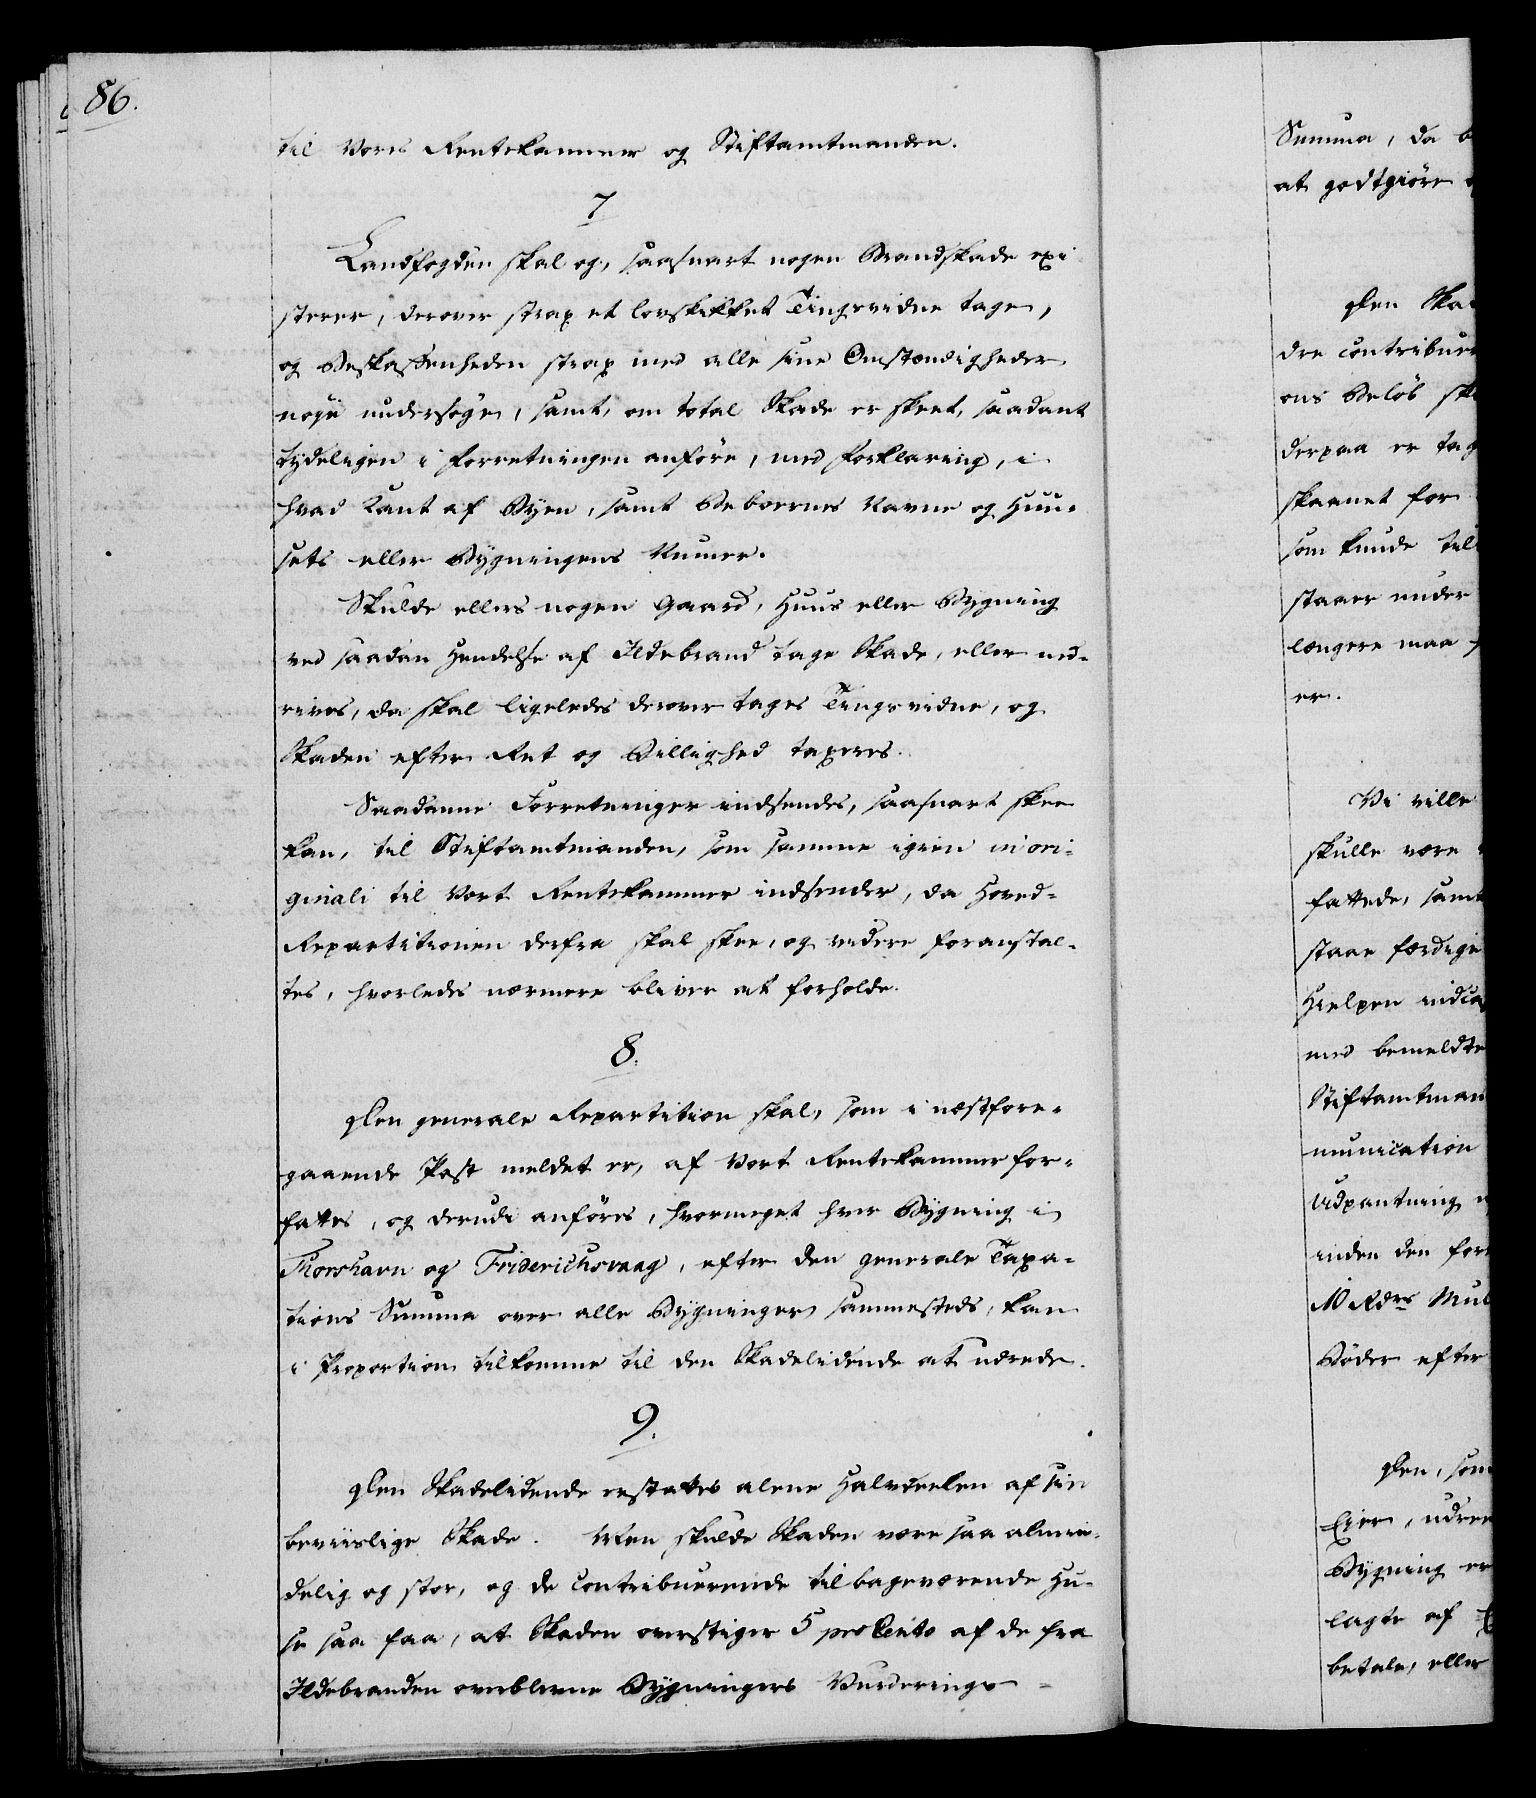 86.
til Vores Rentekammer og Stiftamtmanden.
7
Landfogden skal og, saasnart nogen Brandskade exi
sterer, derover strax et lovskikket Tingsvidne tage,
og Beskaffenheden strax med alle sine Omstændigheder
nøye undersøge, samt, om total Skade er skeet, saadant
tydeligen i Forretningen anføre, med Forklaring, i
hvad Kant af Byen, samt Beboernes Navne og Huu-
sets eller Bygningens Numer.
Skulde ellers nogen Gaard, Huus eller Bygning
ved saadan Hendelse af Ildebrand tage Skade, eller ned-
rives, da skal ligeledes derover tages Tingsvidne, og
Skaden efter Ret og Billighed taxeres.
Saadanne Forretninger indsendes, saasnart skee
kan, til Stiftamtmanden, som samme igien in ori-
ginali til Vort Rentekammer indsender, da Hoved-
Repartitionen derfra skal skee, og videre foranstal-
tes, hvorledes nærmere bliver at forholde.
8.
Den generale Repartition skal, som i næstfore-
gaaende Post meldet er, af Vort Rentekammer for-
fattes, og derudi anføres, hvormeget hver Bygning i
Thorshavn og Friderichsvaag, efter den generale Taxa-
tions Summa over alle Bygninger sammesteds, kan
i Proportion tilkomme til den Skadelidende at udrede.
9.
Den Skadelidende erstattes alene Halvdeelen af sin
beviislige Skade. Men skulde Skaden være saa almin-
delig og stor, og de contribuerende tilbageværende Hu-
se saa faa, at Skaden overstiger 5 pro Cento af de fra
Ildebranden overblevne Bygningers Vurderings-
Summa, da
at godtgiöre
Den
dre
ens Beløb
derpaa er
skaanet for
som kunde
staaer under
længere maa
er.
Vi ville
skulle være
fattede, samt
staae færdige
Hielpen
med bemeldte
Stiftamtman
munication
Udpantning
inden den
10 Rdrs
Bøder efter
Den, som
Eier,
Bygning er
lagte af
betale, eller